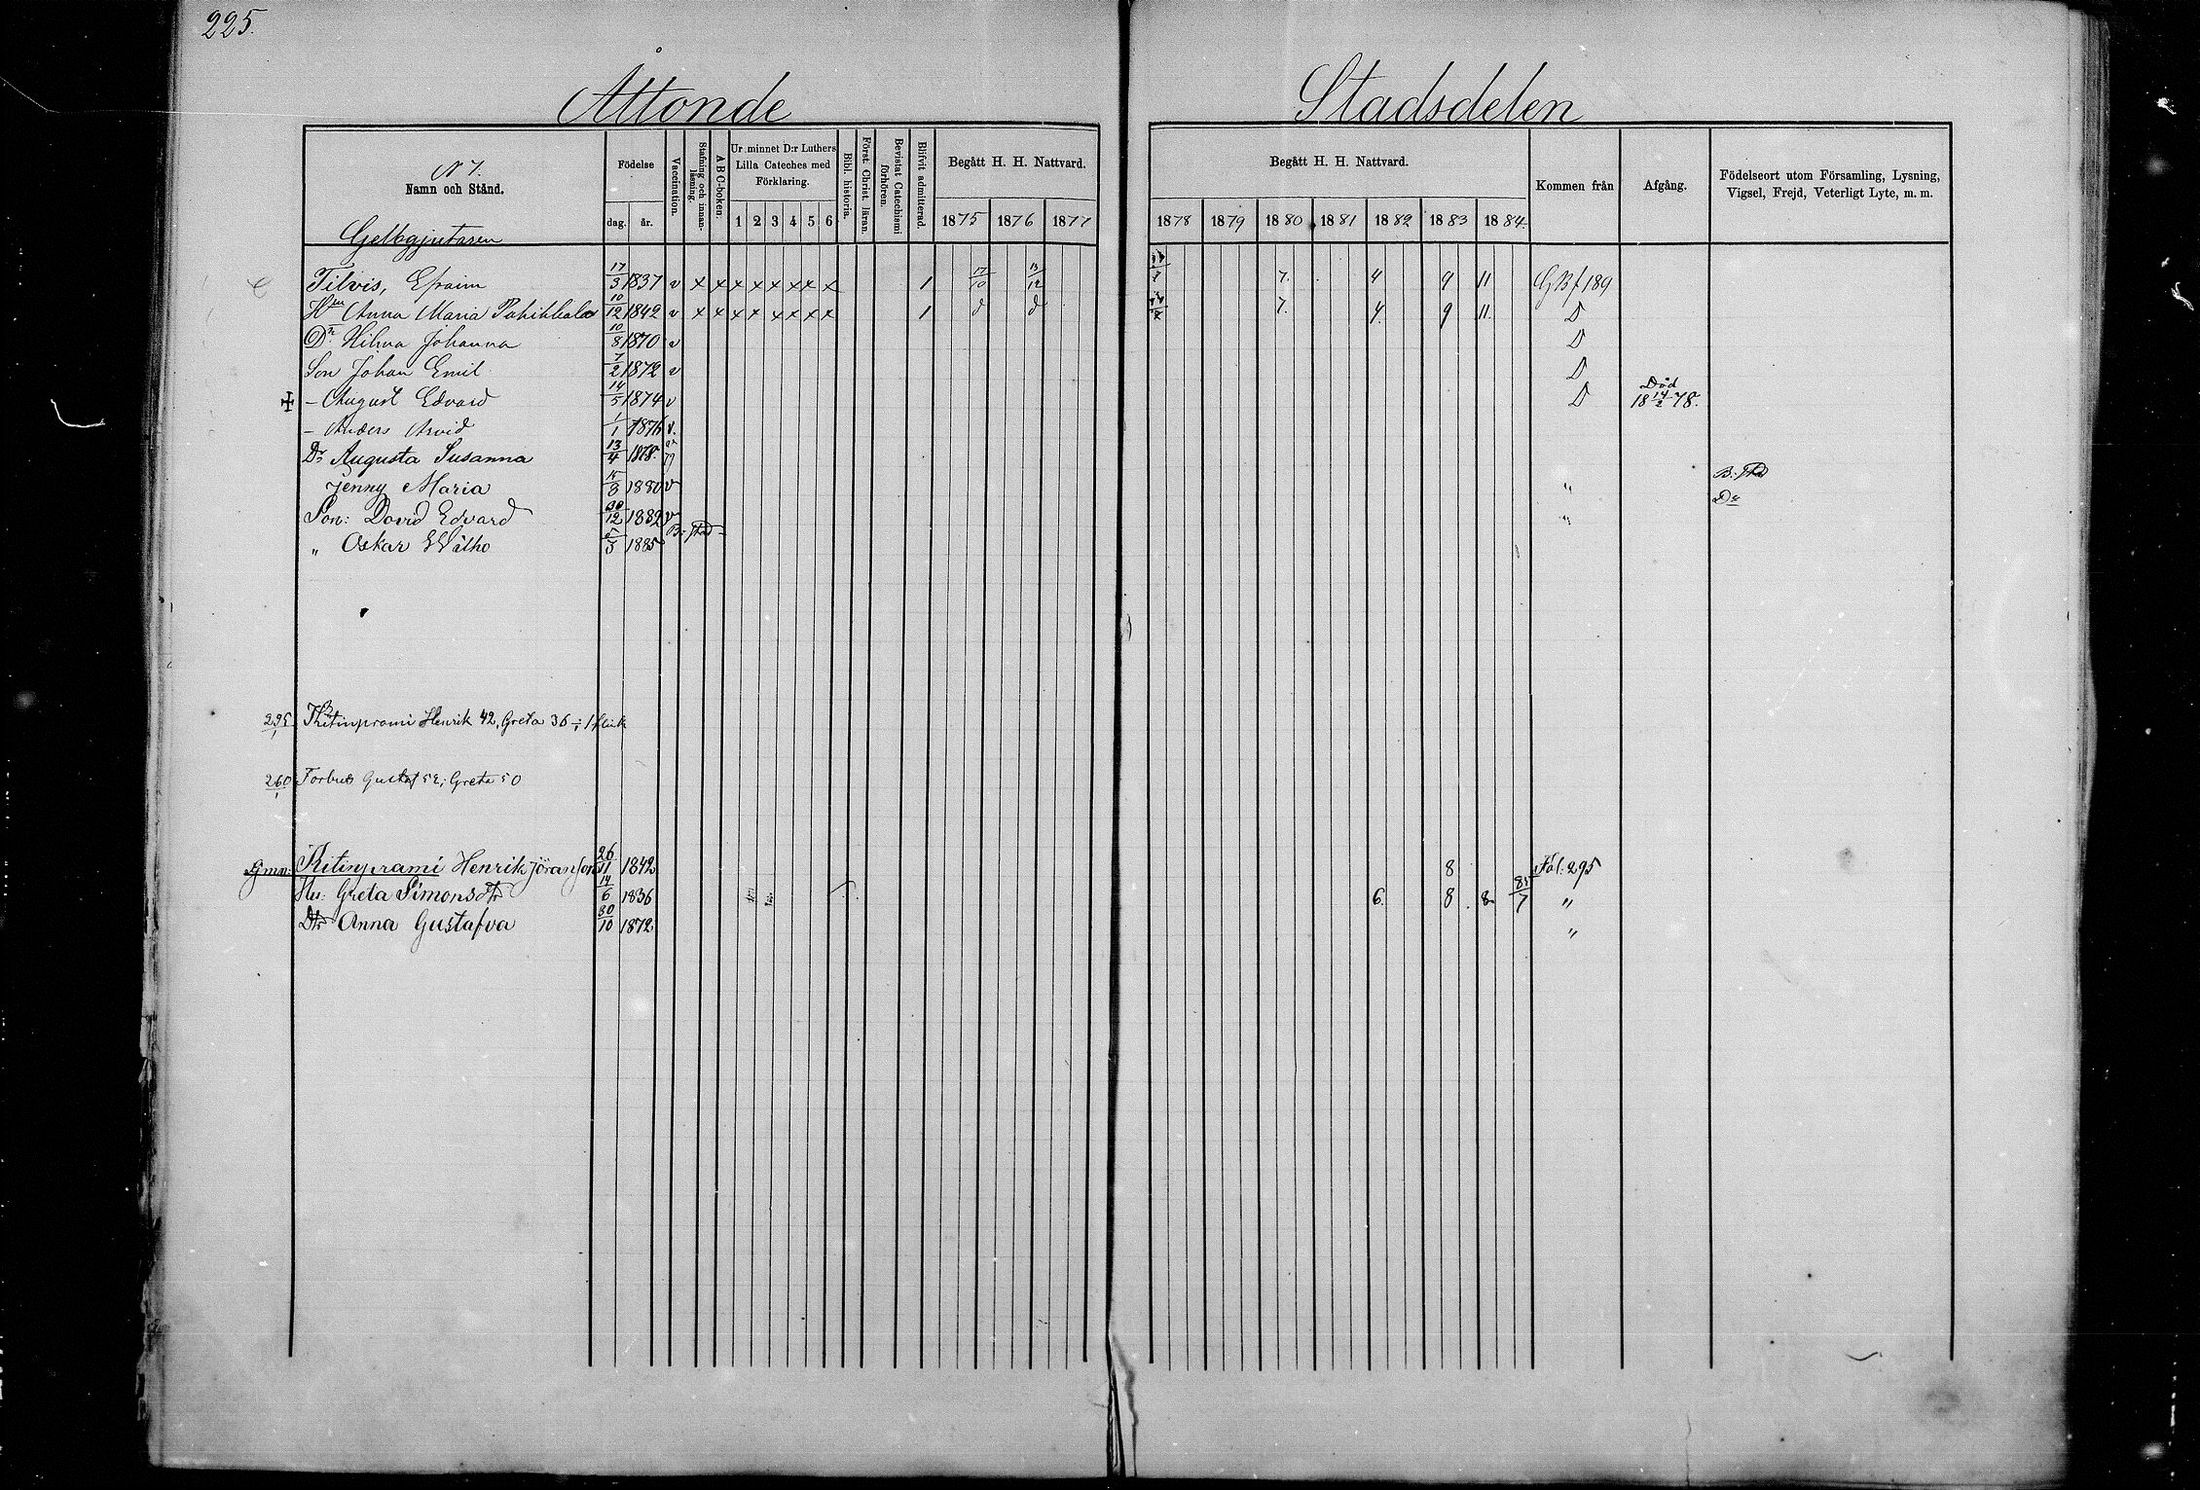 225.
Åttonde Stadsdelen
N 7.
Namn och Stånd.
Födelse
dag. år.
Vaccination.
Stafning och innan-läsning.
A B C-boken.
Ur minnet D:r Luthers Lilla Cateches med Förklaring.
1 2 3 4 5 6
Bibl. historia.
Först. Christ. läran.
Bevistat Catechismi förhören.
Blifvit admitterad.
Begått H. H. Nattvard.
1875 1876 1877
Begått H. H. Nattvard.
1878 1879 1880 1881 1882 1883 1884.
Kommen från
Afgång.
Födelseort utom Församling, Lysning, Vigsel, Frejd, Veterligt Lyte, m. m.
Gelbgjutaren
Tilvis, Efraim 17/3 1837 v x x x x x x x x 1 17/10 13/12 7. 4 9 11 G B f 189
Hun Anna Maria 10/12 1842 v x x x x x x x x 1 d d 7. 4. 9 11. D
Dr Hilma Johanna 10/8 1870 v D
Son Johan Emil 7/2 1872 v D
- August Edvard 14/5 1874 v D Död 18 14/2 78.
- Anders Arvid 1/1 1876 v.
Dr Augusta Susanna 13/4 1878.
Jenny Maria 1880 v "
Son: David Edvard 30/12 1882 v "
" Oskar 5/3 1885
295 Ritinprami Henrik 42, Greta 36
260 Forbus Gustaf 52; Greta 50
Ritinprami Henrik Jöransson 26/11 1842 8 Fol: 295
Hu: Greta Simonsdtr 14/6 1836 6. 8 8 85/7 "
Dtr Anna Gustafva 30/10 1872 "